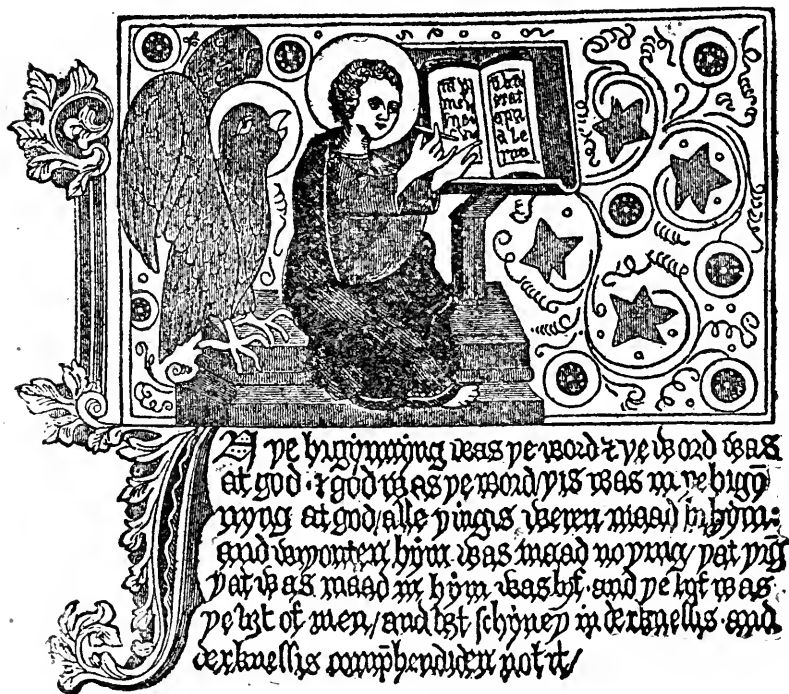 IN þe bigynnyng was þe word ⁊ þe word was
at god · ⁊ god was þe word / þis was in þe bigȳ
nyng at god / alle þingis weren maad bi hym:
and wiþouten hym was maad no þing / þat þīg
þat was maad in hym was lyf · and þe lyf was
þe liȝt of men / and liȝt schyneþ in derknessis · and
derknessis comp̄hendiden not it /